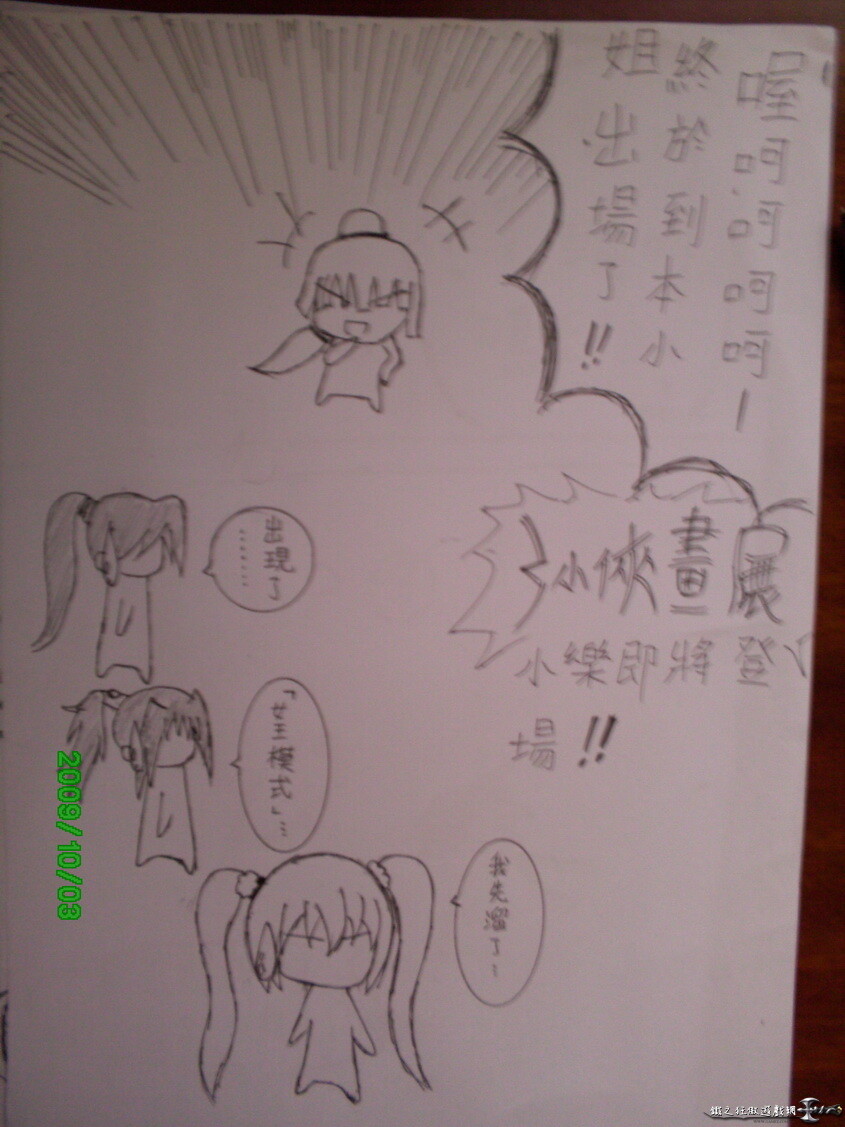 喔呵呵呵呵~
終於到本小
姐出場了!!
小俠畫展
小樂即將登
場!!
出現了
……
「女王模式」…
我先溜了~
2009/10/03